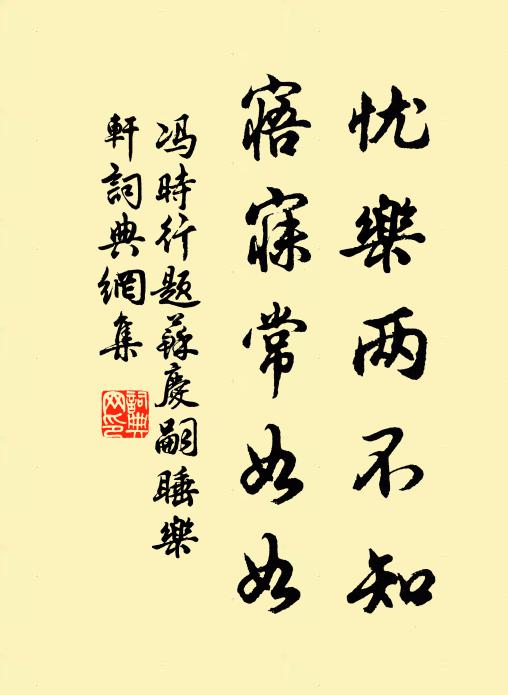 忧樂两不知
寤寐常如如
冯時行题蘇慶嗣睡樂
軒詞典網集
詞典
网印